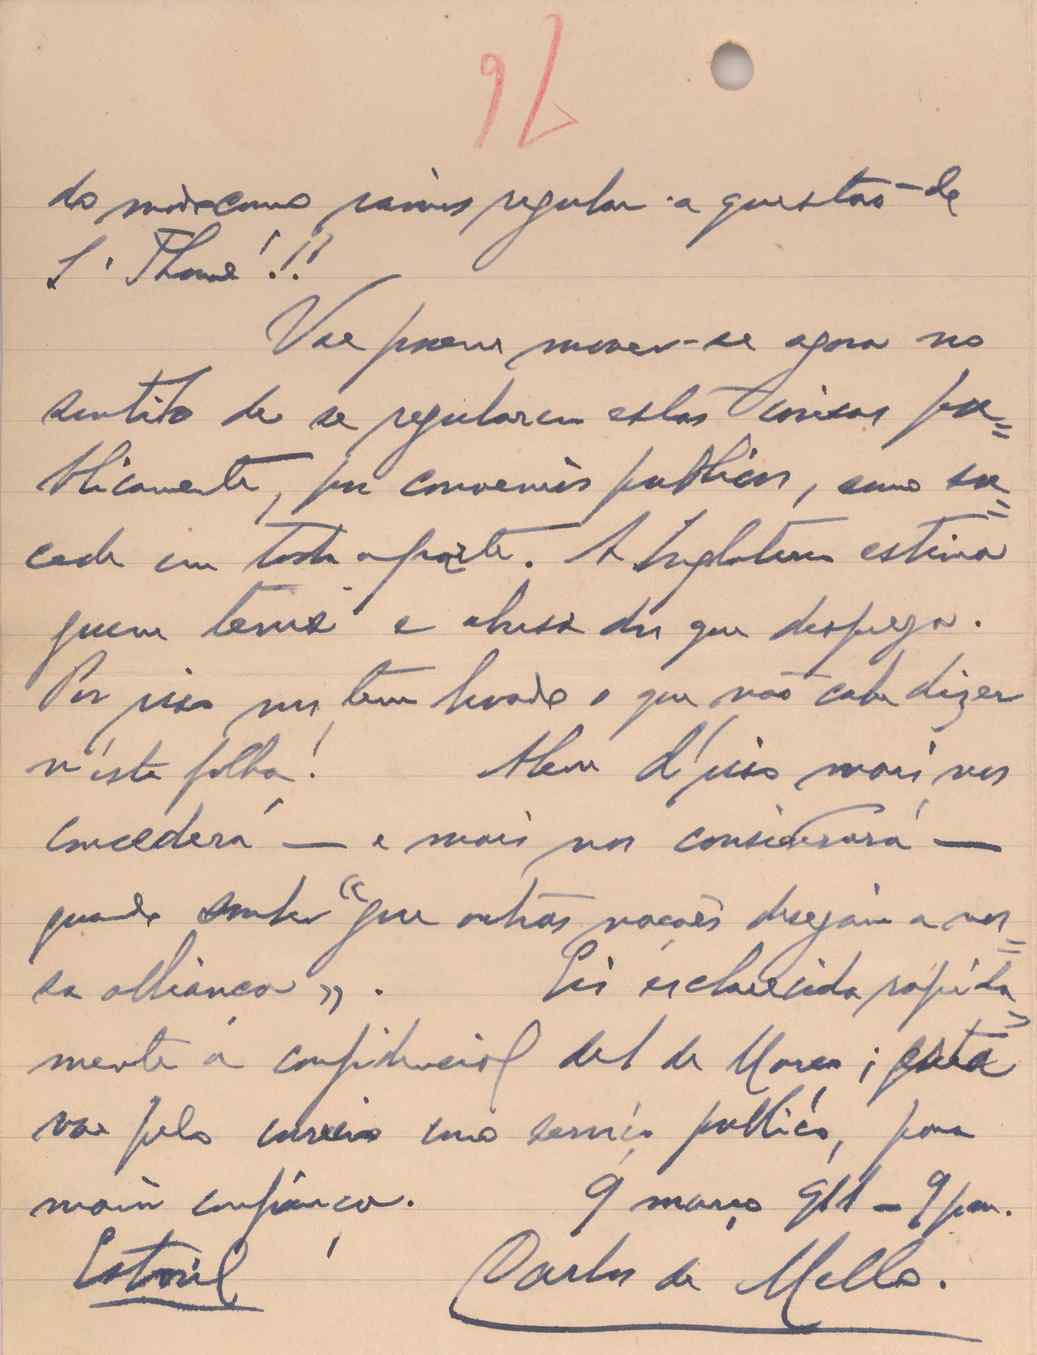 96
do modo como vamos regular a questão de
S. Thomé!!!
Vae porem mover-se agora no
sentido de se regularem estas coisas pu=
blicamente, por convenios publicos, como su=
cede em toda a parte. A Inglaterra estima
quem teme e abusa dos que despreza.
Por isso nos tem levado o que não cabe dizer
n'esta folha! Alem d'isso mais nos
concederá — e mais nos considerará —
quando souber "que outras nações desejam a nos=
sa alliança". Eis esclarecida rapida=
mente a confidencial de 1 de Março; esta
vae pelo correio como serviço publico, para
maior confiança. 9 março 911 - 9 pm.
Estoril Carlos de Mello.